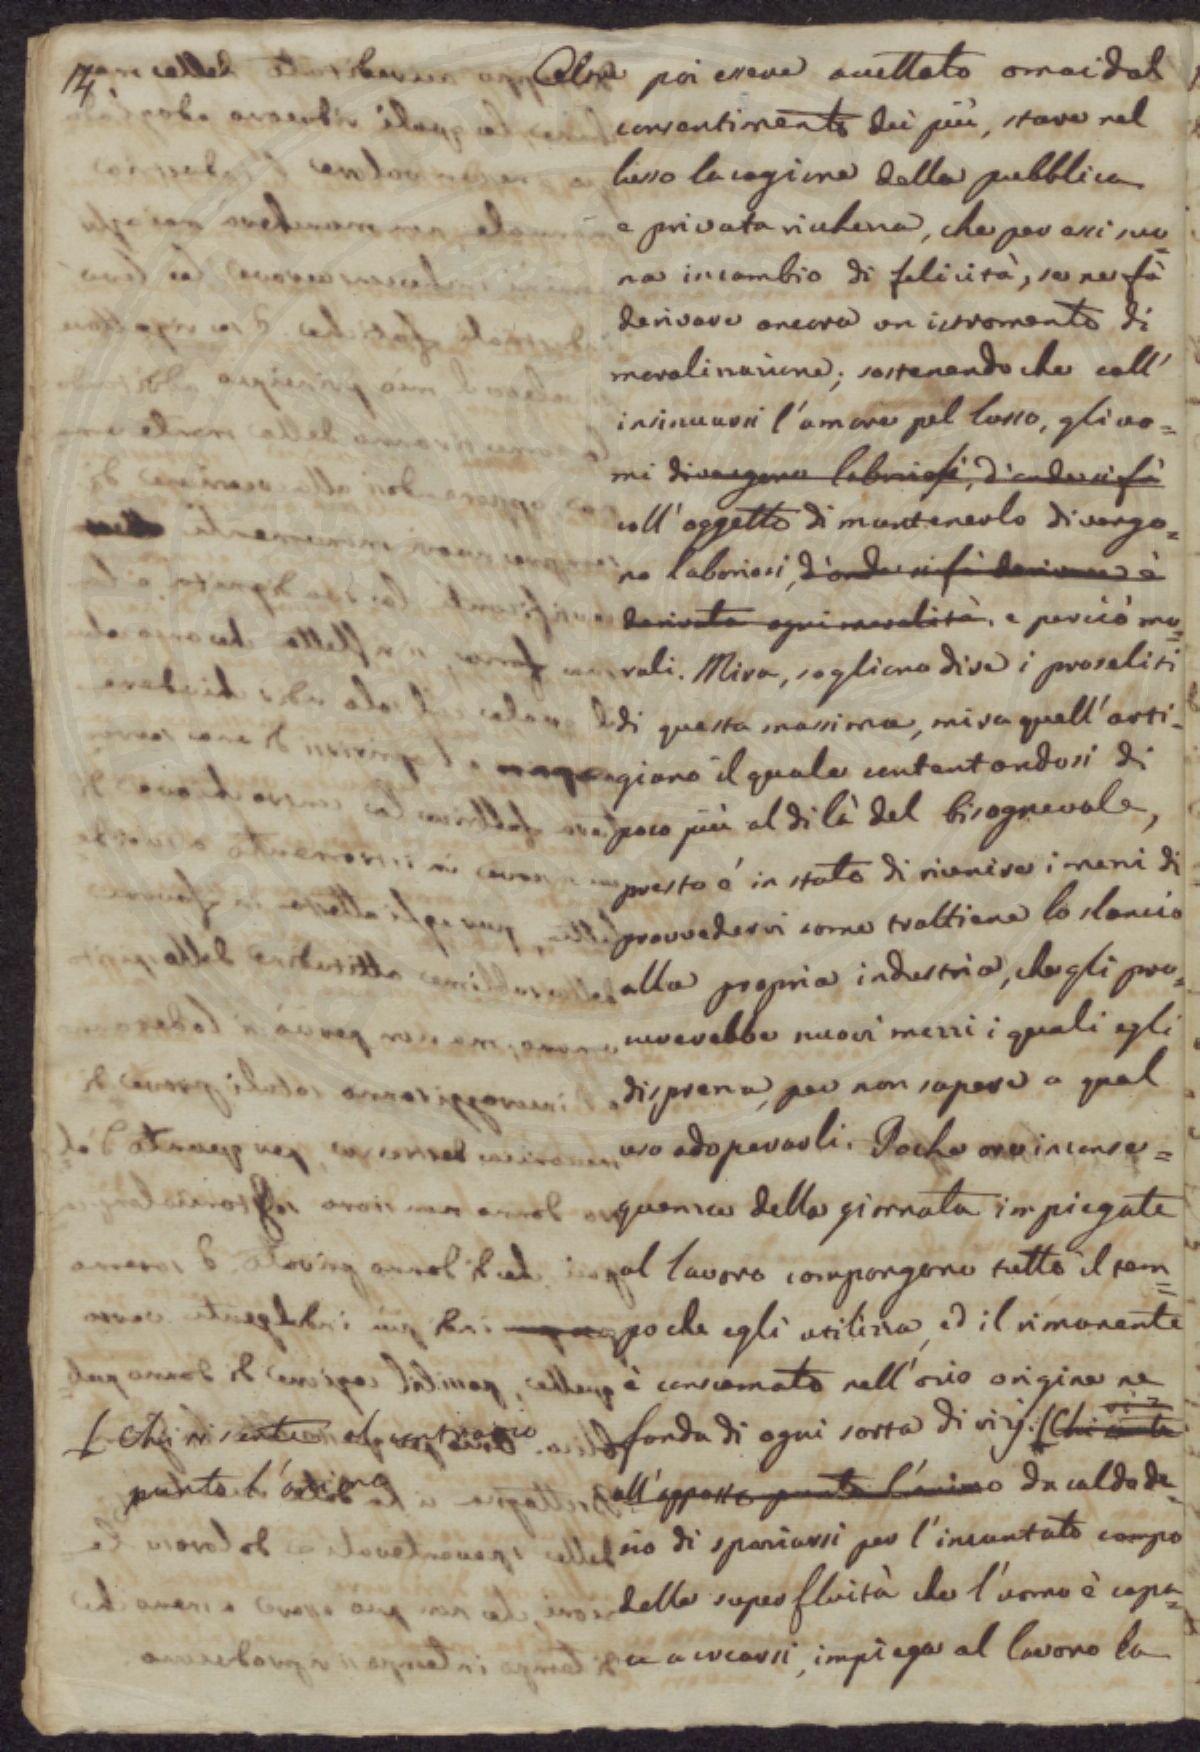 14
Oltre poi essere accettato omai dal
consentimento dei più, stare nel
lusso la cagione della pubblica
e privata richezza, che per essi suo=
na incambio di felicità, se ne fà
derivare ancora un istromento di
moralizzazione; sostenendo che coll'
insinuarsi l'amore pel lusso, gli uo=
mi divengono laboriosi, d'onde si fà
coll'oggetto di mantenerlo divengo=
no laboriosi, d'onde si fà derivare è
derivata ogni moralità. e perciò mo=
rali. Mira, sogliono dire i proseliti
di questa massima, mira quell'arti=
giano il quale contentandosi di
poco più al di là del bisognevole,
presto è in stato di riunire i mezzi di
provvedersi come trattiene lo slancio
alla propria industria, che gli pro=
curerebbe nuovi mezzi i quali egli
disprezza, per non sapere a qual
uso adoperarli. Poche ore in conse=
quenza della giornata impiegate
al lavoro compongono tutto il tem=
po che egli utilizza, ed il rimanente
è consumato nell'ozio origine ne
fonda di ogni sorta di vizj. [Chi sente
all'opposto punto l'animo da caldo de=
sio di spaziarsi per l'incantato campo
della superfluità che l'uomo è capa=
ce a crearsi, impiega al lavoro la
[ Chi si sente al contrario
punto l'animo